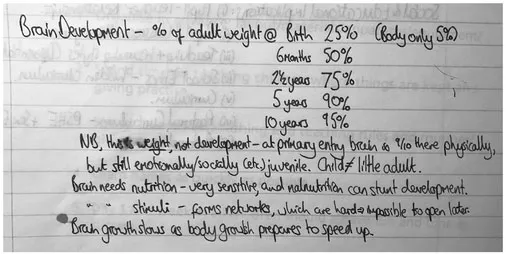 Brain Development - % of adult weight @ Birth 25% (Body only 5%)
6 months 50%
2½ years 75%
5 years 90%
10 years 95%
NB, this weight, not development - at primary entry brain is 9/10 there physically,
but still emotionally/socially (etc) juvenile. Child ≠ little adult.
Brain needs nutrition - very sensitive, and malnutrition can stunt development.
" " stimuli - forms networks, which are hard → impossible to open later.
Brain growth slows as body growth prepares to speed up.